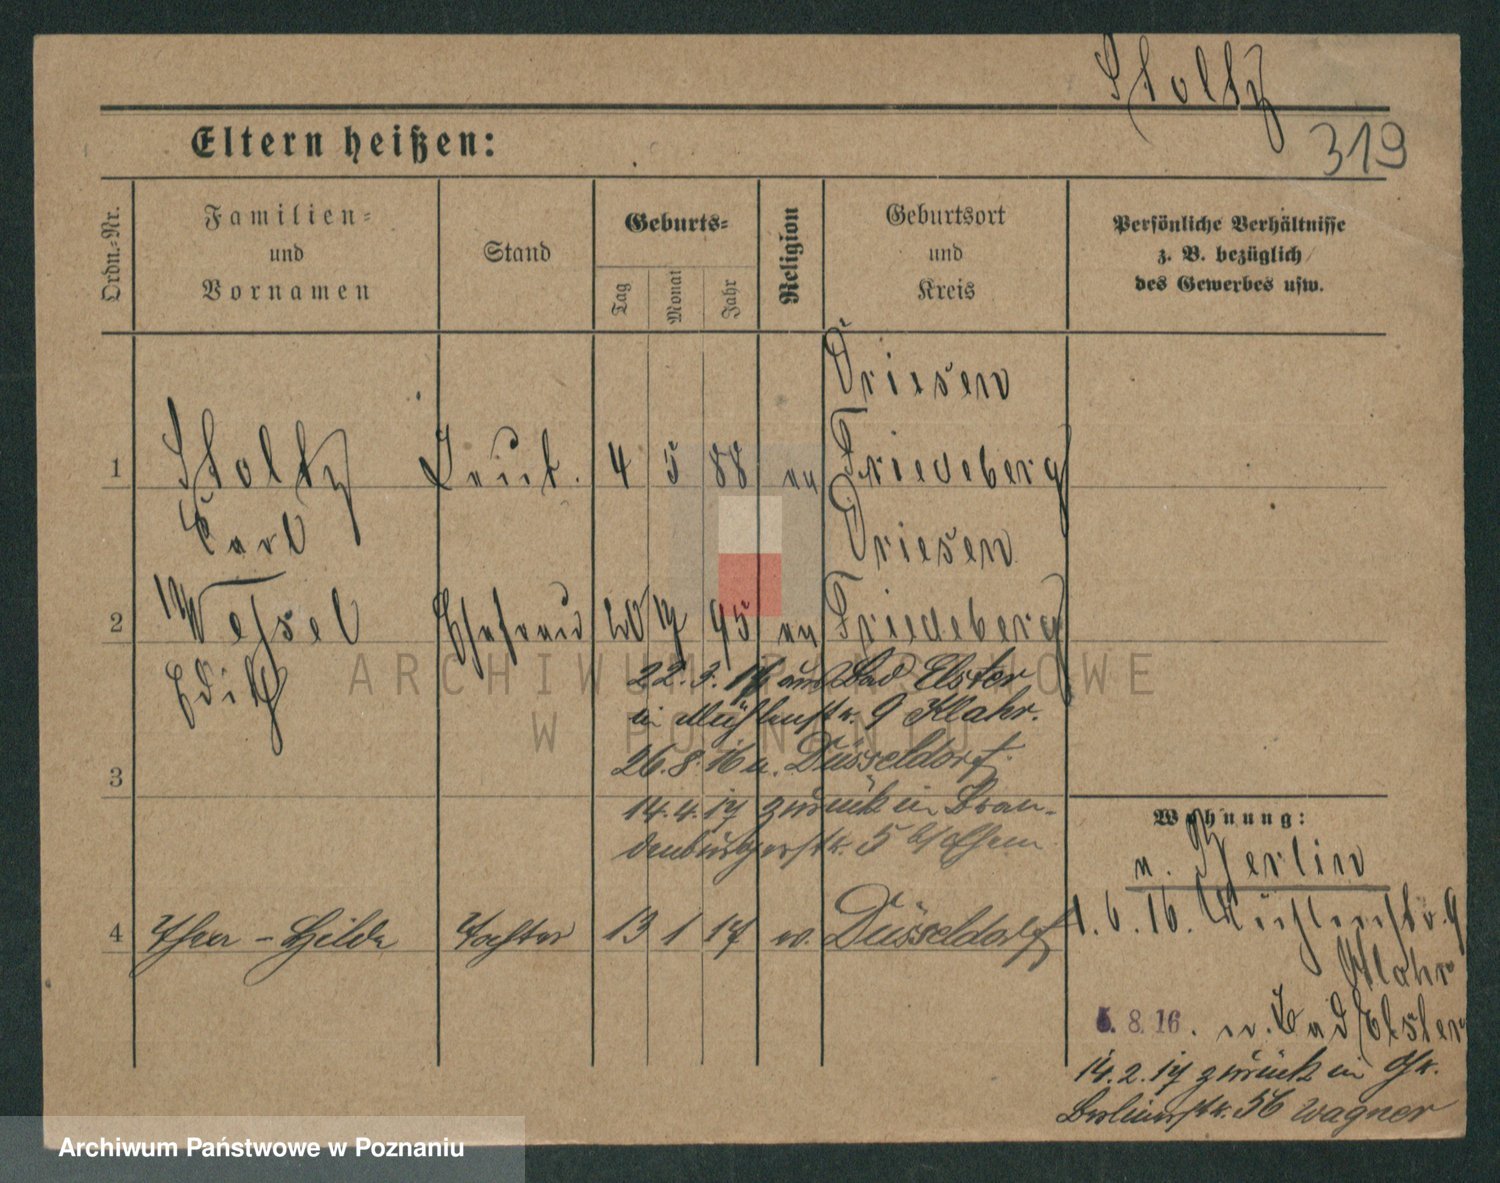 Stoltz
319
Eltern heißen:
Ordn.-Nr.
Familien-
und
Vornamen
Stand
Geburts-
Tag
Monat
Jahr
Religion
Geburtsort
und
Kreis
Persönliche Verhältnisse
z. B. bezüglich
des Gewerbes usw.
Driesen
1 Stoltz Leut. 4 5 88 ev Friedeberg
Carl Driesen
2 Wessel Ehefrau 20 95 ev Friedeberg
Edith
22.3.17 aus Bad Elster
in Mühlenstr. 9 Klahr.
3 26.8.16 n. Düsseldorf.
14.4.17 zurück in Bran-
denburgerstr. 5 b/
Wohnung:
n. Berlin
4 Hilde Tochter 13 1 17 ev. Düsseldorf
1.6.16. Mühlenstr. 9
Klahr
5.8.16. n. Bad Elster
14.2.17 zurück in Gr.
Berlinerstr. 56 Wagner
ARCHIWUM PAŃSTWOWE
W POZNANIU
Archiwum Państwowe w Poznaniu